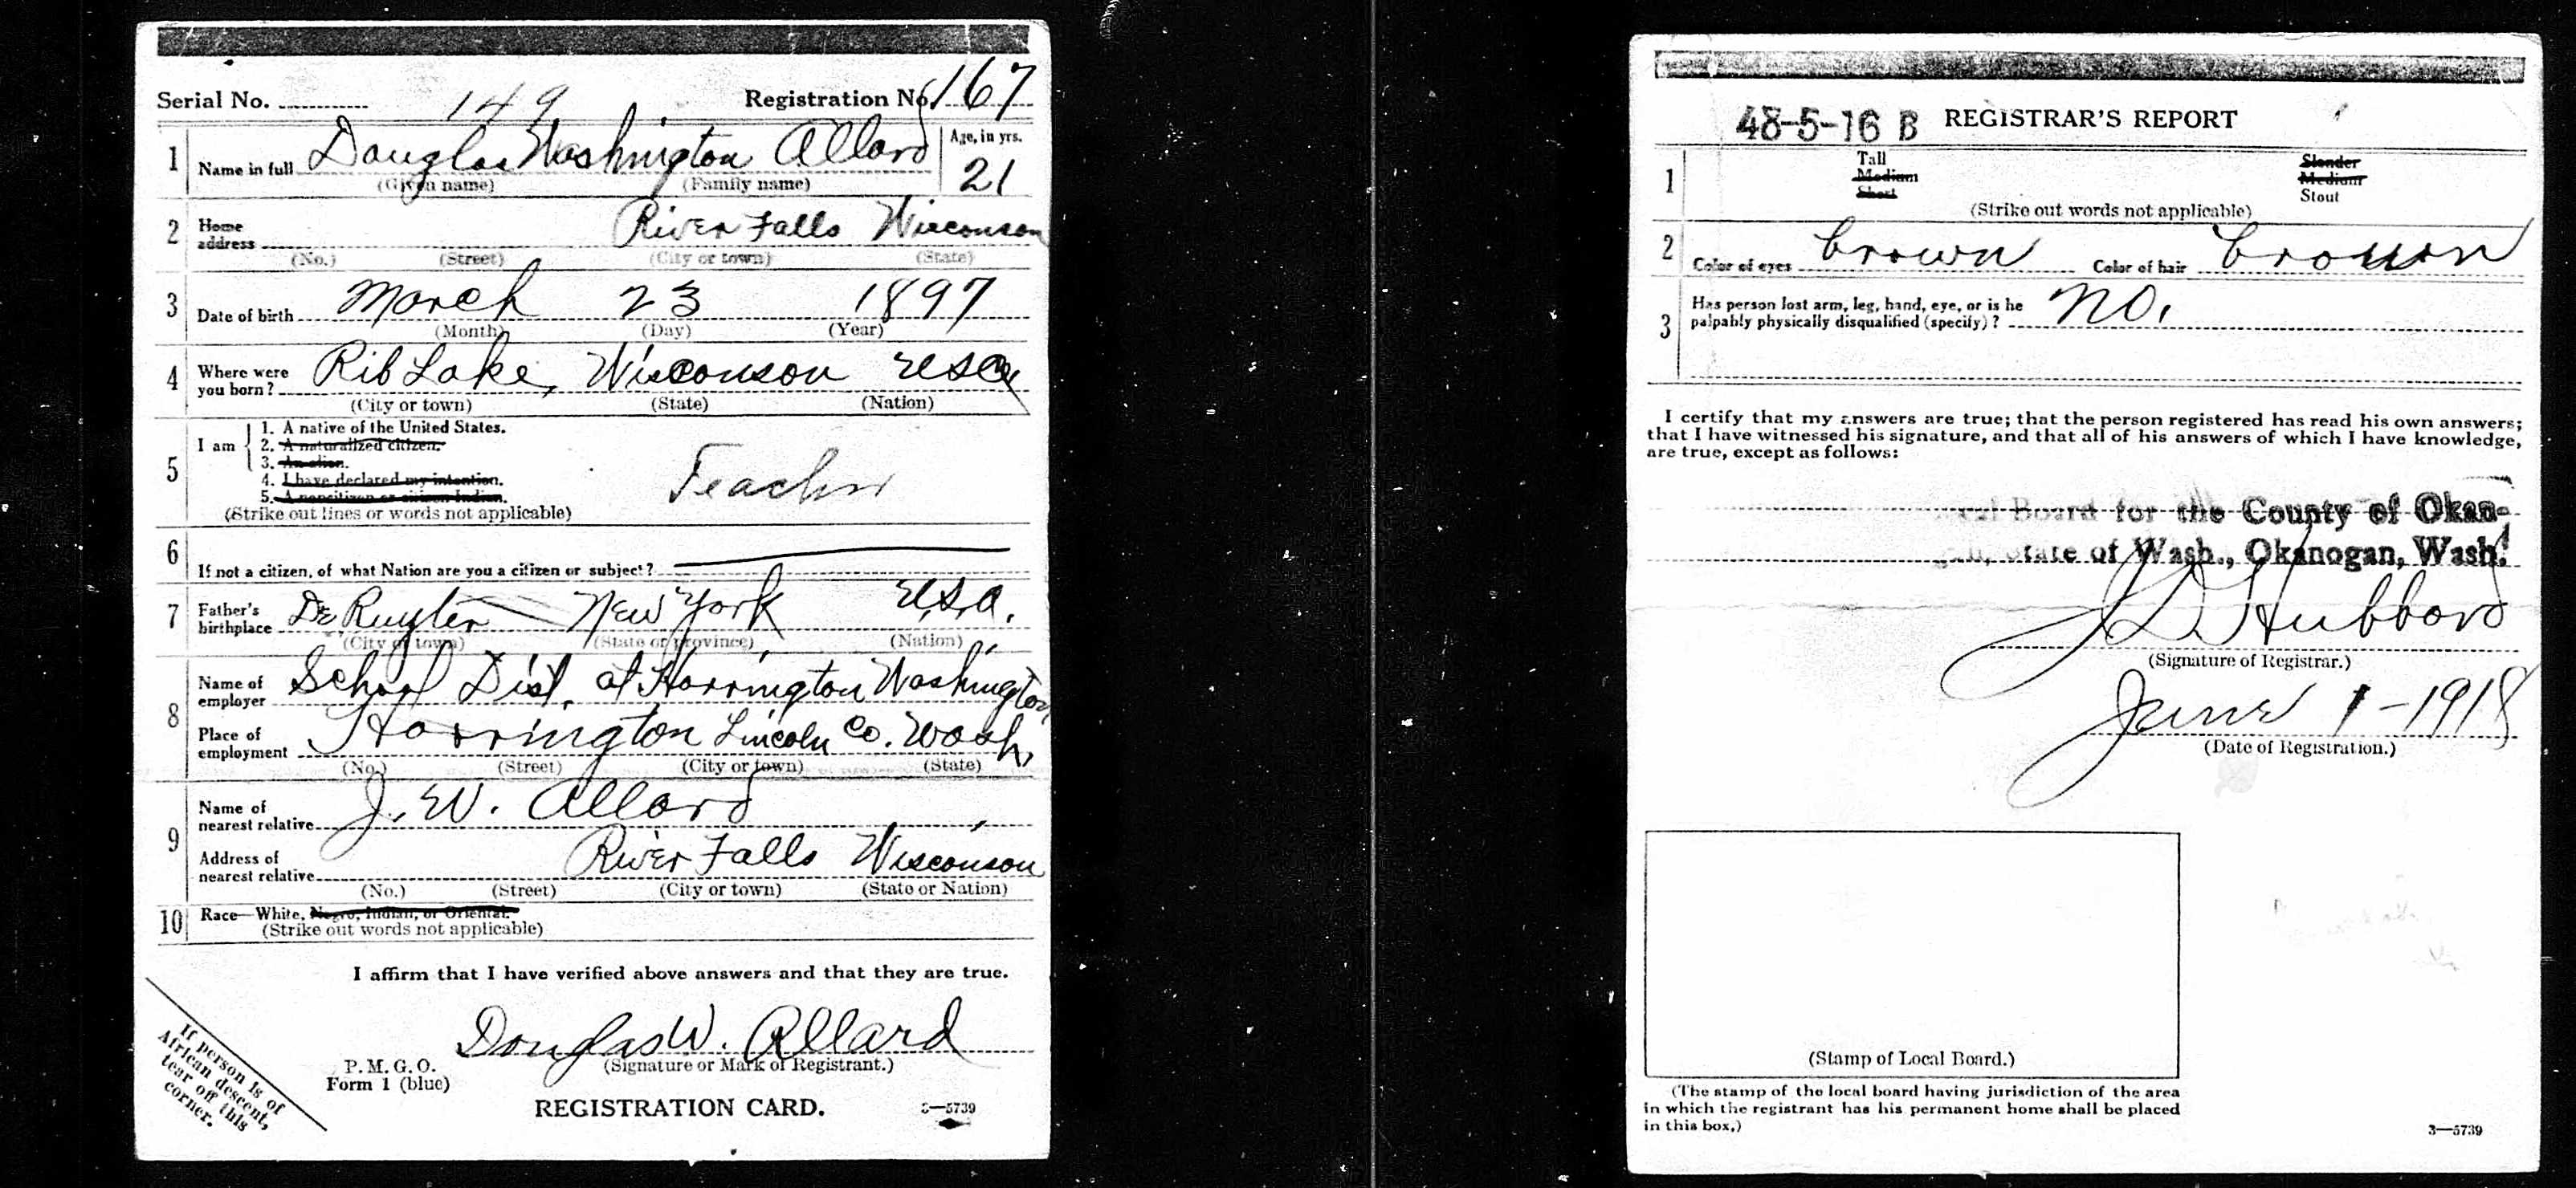 Serial No. 149 Registration No. 167
1 Name in full Douglas Washington Allard Age, in yrs.
(Given name) (Family name) 21
2 Home address River Falls Wisconson
(No.) (Street) (City or town) (State)
3 Date of birth March 23 1897
(Month) (Day) (Year)
4 Where were you born? Rib Lake, Wisconson USA
(City or town) (State) (Nation)
5 I am
1. A native of the United States.
2. A naturalized citizen.
3. An alien.
4. I have declared my intention.
5. A noncitizen or citizen Indian.
(Strike out lines or words not applicable)
Teacher
6 If not a citizen, of what Nation are you a citizen or subject?
7 Father's birthplace De Ruyter New York U.S.A.
(City or town) (State or province) (Nation)
8 Name of employer School Dist. at Harrington Washington
Place of employment Harrington Lincoln Co. Wash.
(No.) (Street) (City or town) (State)
9 Name of nearest relative J. W. Allard
Address of nearest relative River Falls Wisconson
(No.) (Street) (City or town) (State or Nation)
10 Race—White, Negro, Indian, or Oriental.
(Strike out words not applicable)
I affirm that I have verified above answers and that they are true.
Douglas W. Allard
(Signature or Mark of Registrant.)
P. M. G. O.
Form 1 (blue)
REGISTRATION CARD.
3—5739
If person is of
African descent,
tear off this
corner.
48-5-16 B REGISTRAR'S REPORT
1 Tall Slender
Medium Medium
Short Stout
(Strike out words not applicable)
2 Color of eyes brown Color of hair brown
3 Has person lost arm, leg, hand, eye, or is he
palpably physically disqualified (specify)? no.
I certify that my answers are true; that the person registered has read his own answers;
that I have witnessed his signature, and that all of his answers of which I have knowledge,
are true, except as follows:
Board for the County of Okan-
State of Wash., Okanogan, Wash.
Hubbard
(Signature of Registrar.)
June 1-1918
(Date of Registration.)
(Stamp of Local Board.)
(The stamp of the local board having jurisdiction of the area
in which the registrant has his permanent home shall be placed
in this box.)
3—5739